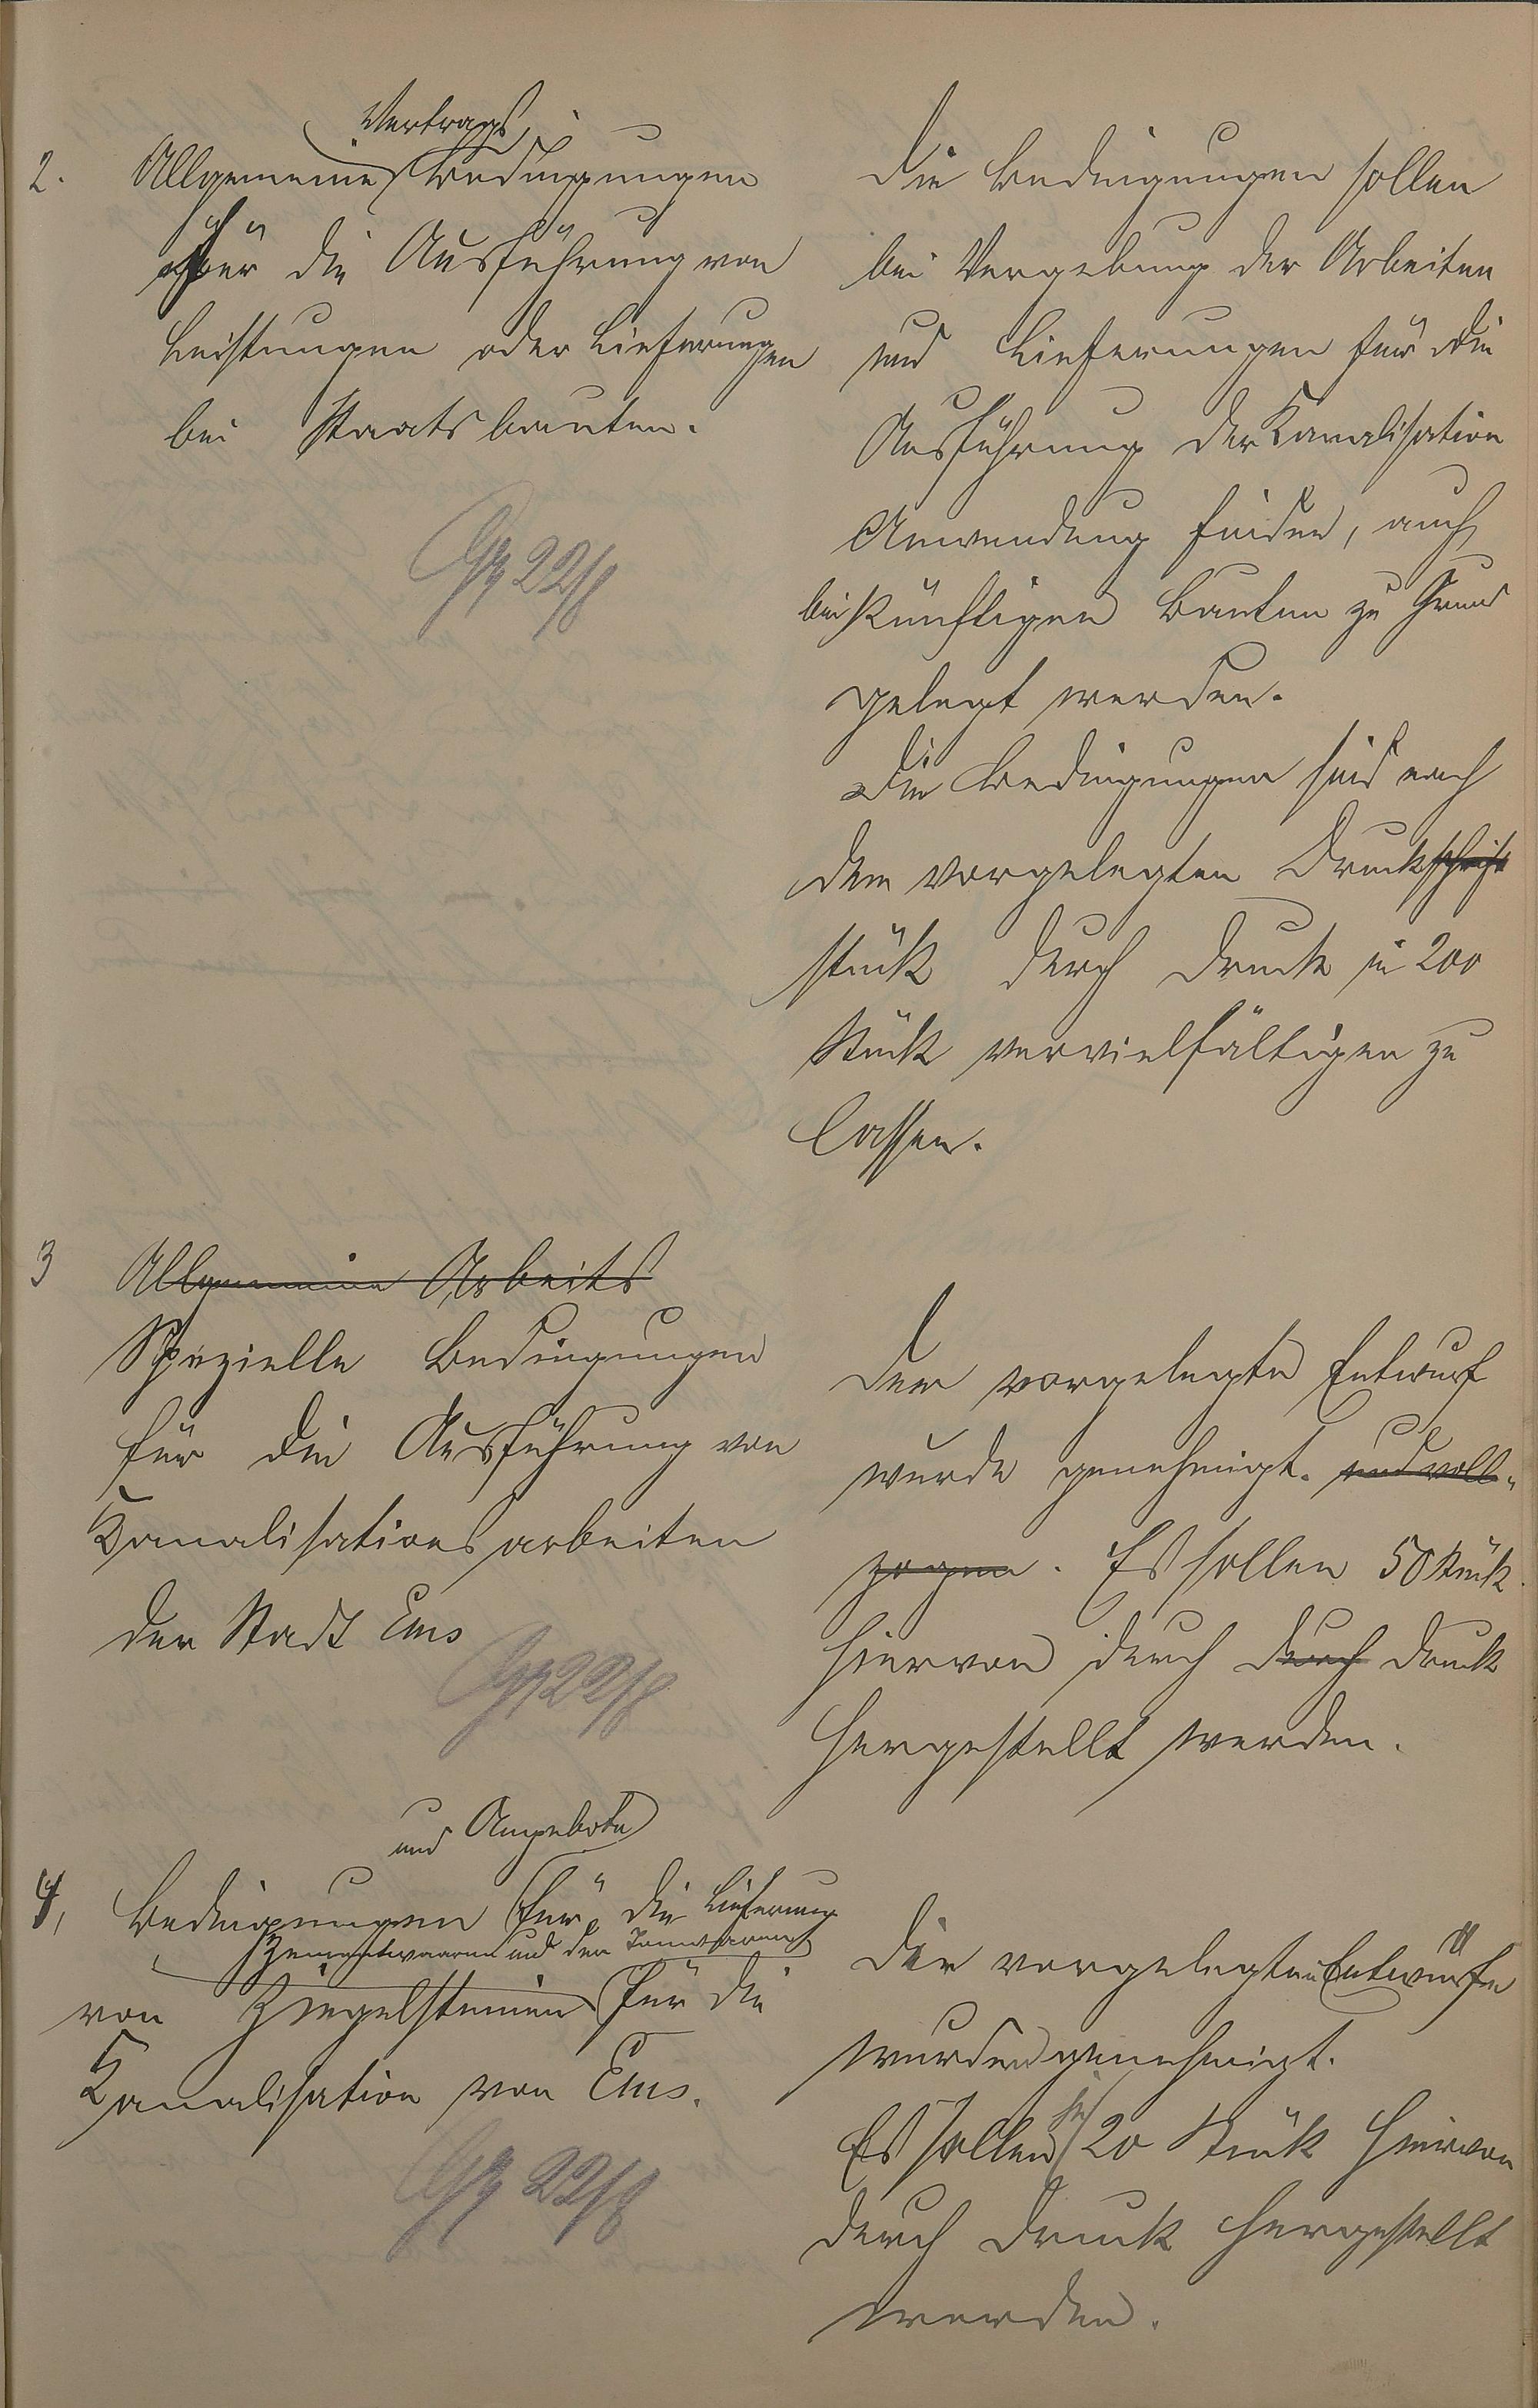 2.
Vertrags
Allgemeine Bedingungen
für die Ausführung von
Leistungen oder Lieferungen
bei Staatsbauten.
22/8
Die Bedingungen sollen
bei Vergebung der Arbeiten
und Lieferungen für die
Ausführung der Kanalisation
Anwendung finden, auch
bei künftigen Bauten zu Grund
gelegt werden.
Die Bedingungen sind nach
dem vorgelegten Druckschrift
stück durch Druck in 200
Stück vervielfältigen zu
lassen.
3
Allgemeine Arbeits
Spezielle Bedingungen
für die Ausführung von
Kanalisationsarbeiten
der Stadt Ems
22/8
Der vorgelegte Entwurf
wurde genehmigt. und voll-
zogen. Es sollen 50 Stück
hiervon durch durch Druck
hergestellt werden.
4,
und Angebote
Bedingungen für die Lieferung
Zementwaaren und der Tonwaaren
von Ziegelsteinen für die
Kanalisation von Ems.
22/8
Die vorgelegten Entwürfe
wurden genehmigt.
Es sollen je 20 Stück hiervon
durch Druck hergestellt
werden.